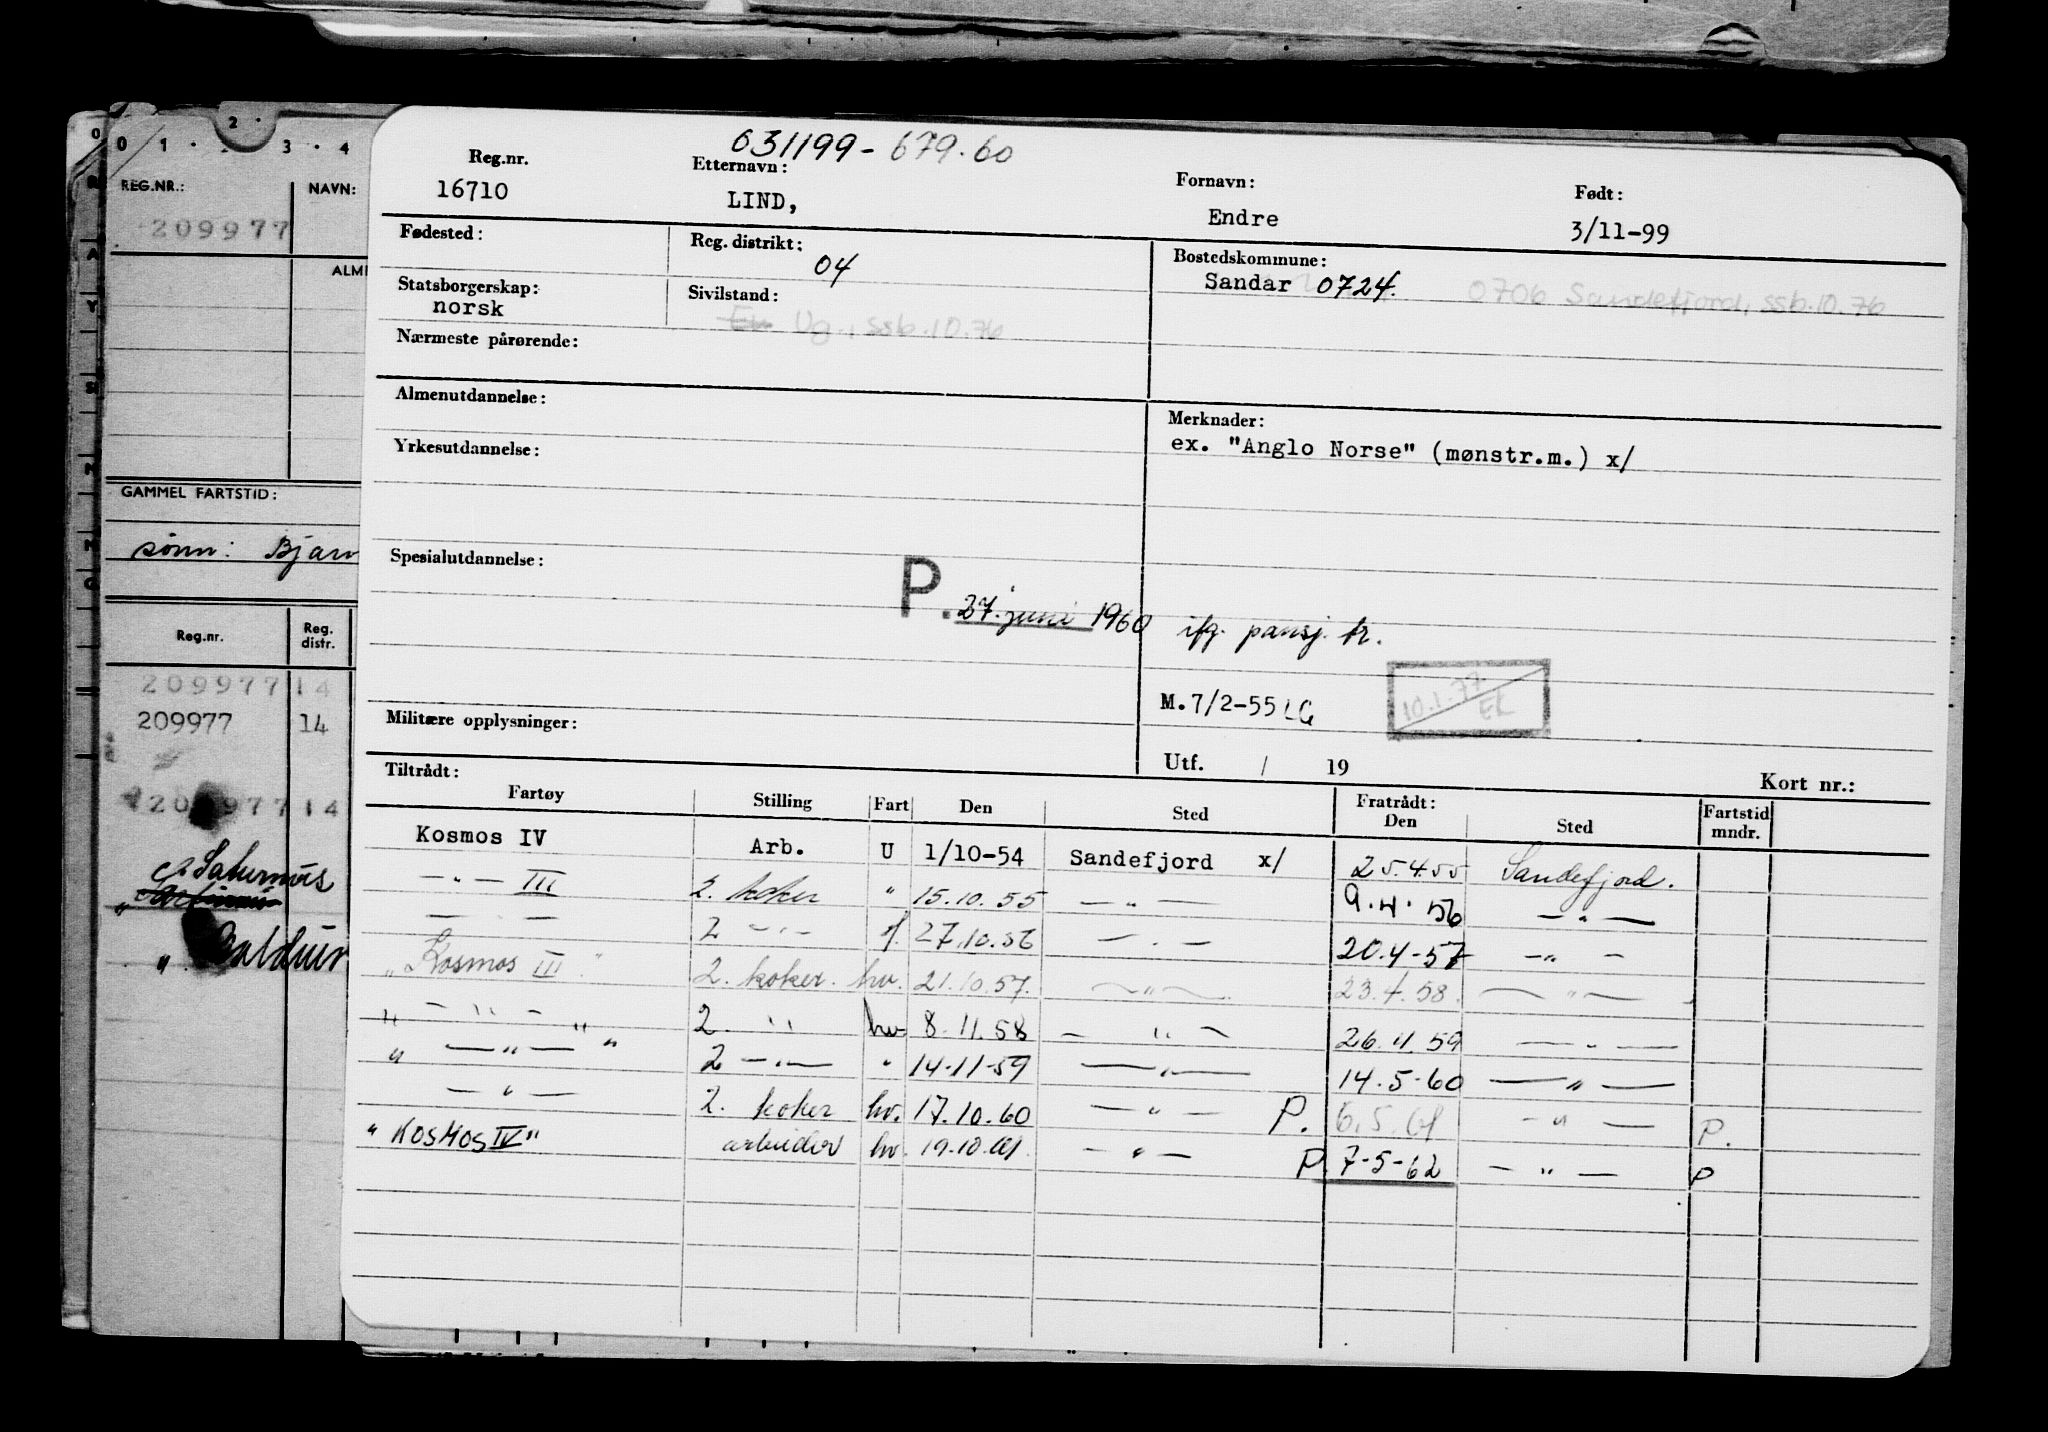 0 1 · 2 · 3 · 4
REG.NR.: NAVN:
209977
GAMMEL FARTSTID:
sønn: Bjarn
Reg.nr. Reg. distr.
209977 14
209977 14
209977 14
Saturnus
" Baldur
031199-679.60
Reg.nr. Etternavn: Fornavn: Født:
16710 LIND, Endre 3/11-99
Fødested: Reg. distrikt: Bostedskommune:
04 Sandar 0724. 0706 Sandefjord, ssb.10.76
Statsborgerskap: Sivilstand:
norsk Ug., ssb.10.76
Nærmeste pårørende:
Almenutdannelse: Merknader:
Yrkesutdannelse: ex. "Anglo Norse" (mønstr.m.) x/
Spesialutdannelse:
P. 27. juni 1960 ifg. pensj. tr.
M.7/2-55 LG 10.1.77 EL
Militære opplysninger:
Utf. / 19 Kort nr.:
Tiltrådt: Fratrådt:
Fartøy Stilling Fart Den Sted Den Sted Fartstid mndr.
Kosmos IV Arb. U 1/10-54 Sandefjord x/ 25.4.55 Sandefjord.
— " — III 2. koker " 15.10.55 — " — 9.4.56 — " —
— " — 2 — " — f. 27.10.56 — " — 20.4-57 — " —
"Kosmos III" 2. koker. hv. 21.10.57. — " — 23.4.58. — " —
" — " — " 2. " hv 8.11.58 — " — 26.4.59 — " —
" — " — " 2 — " — " 14-11-59 — " — 14.5-60 — " —
— " — 2. koker hv. 17.10.60 — " — P. 6.5.61 — " — P.
"KOSMOS IV" arbeider hv. 19.10.61. — " — P. 7-5-62 — " — P